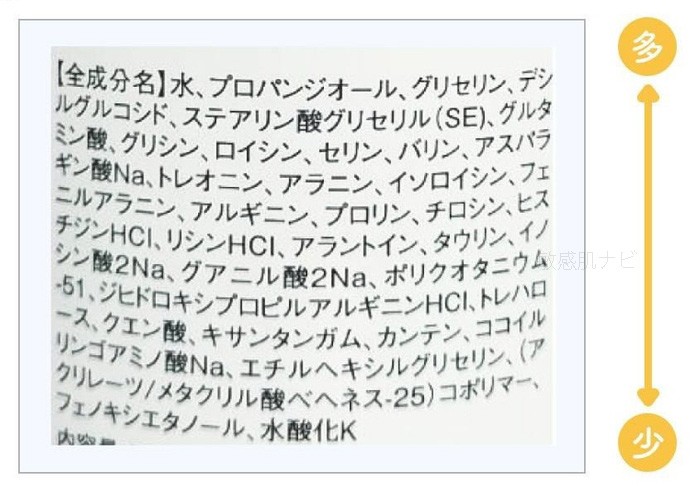 【全成分名】水、プロパンジオール、グリセリン、デシ
ルグルコシド、ステアリン酸グリセリル(SE)、グルタ
ミン酸、グリシン、ロイシン、セリン、バリン、アスパラ
ギン酸Na、トレオニン、アラニン、イソロイシン、フェ
ニルアラニン、アルギニン、プロリン、チロシン、ヒス
チジンHCl、リシンHCl、アラントイン、タウリン、イノ
シン酸2Na、グアニル酸2Na、ポリクオタニウム
-51、ジヒドロキシプロピルアルギニンHCl、トレハロ
ース、クエン酸、キサンタンガム、カンテン、ココイル
リンゴアミノ酸Na、エチルヘキシルグリセリン、(ア
クリレーツ/メタクリル酸ベヘネス-25)コポリマー、
フェノキシエタノール、水酸化K
内容量
多
敏感肌ナビ
少